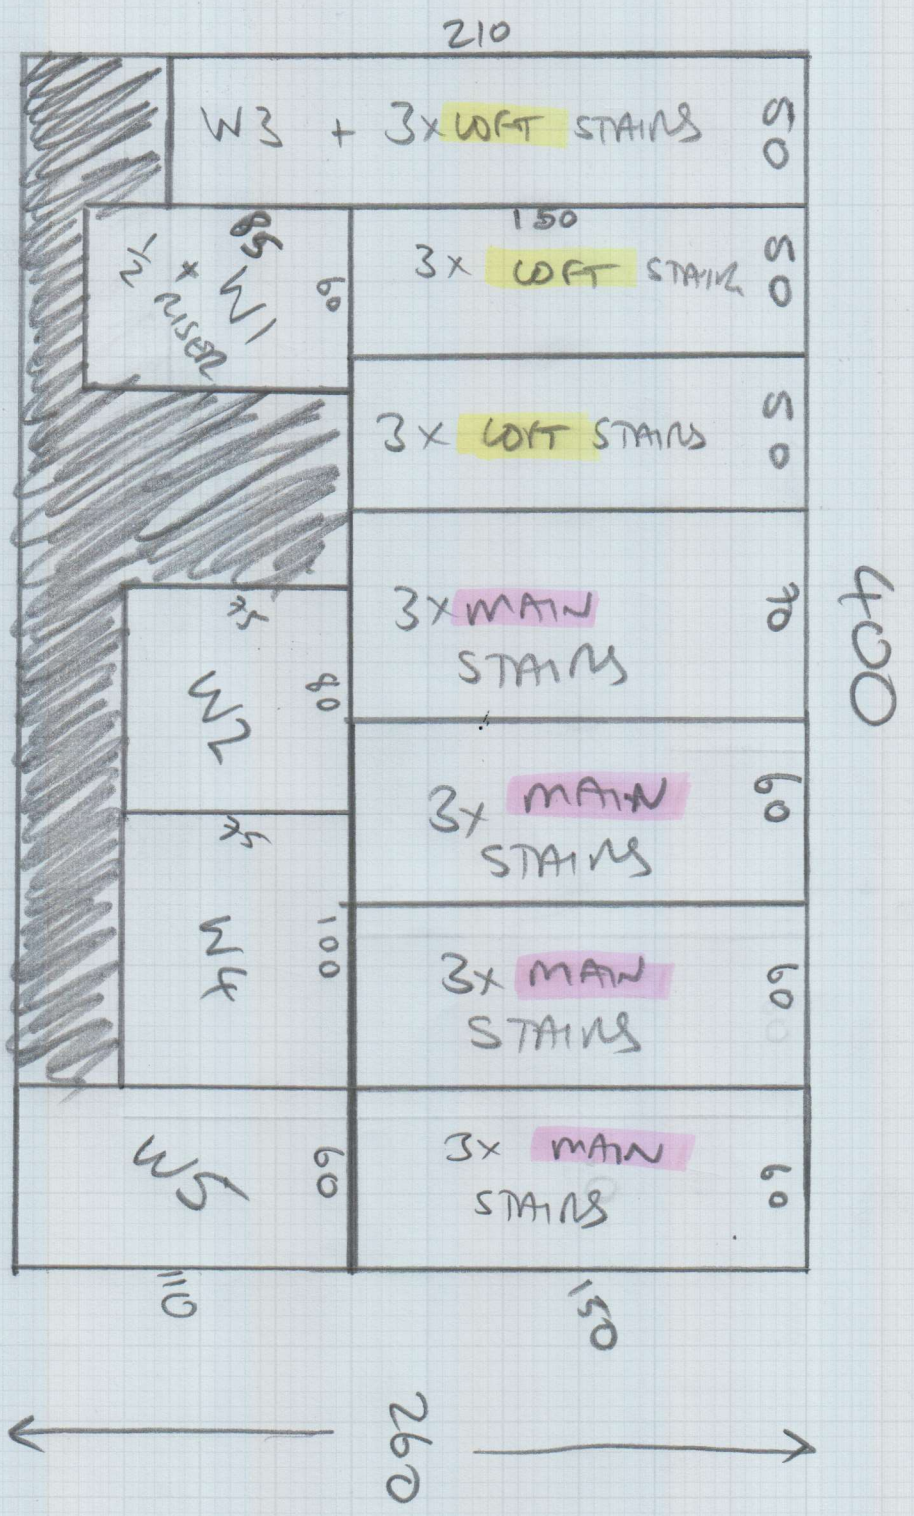 210
W3 + 3x LOFT STAIRS
50
85
60
1/2 x RISER
W1
150
3x LOFT STAIR
50
3x LOFT STAIRS
50
75
W2
80
3x MAIN
STAIRS
70
400
3x MAIN
STAIRS
60
75
W4
100
3x MAIN
STAIRS
60
W5
60
3x MAIN
STAIRS
60
110
150
260